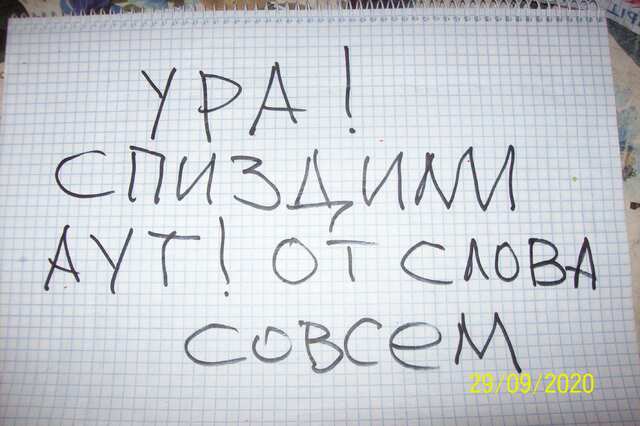 УРА!
СПИЗДИЛИ
АУТ! ОТ СЛОВА
СОВСЕМ
29/09/2020